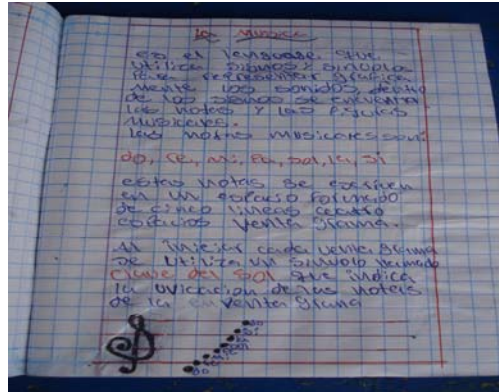 la musica
es el lenguaje que
utiliza signos y simbolos
para representar grafica
mente los sonidos, dentro
de los signos se encuentran
las notas y las figuras
musicares.
las notas musicares son:
do, re, mi, fa, sol, la, si
estas notas se escriven
en un espacio formado
de cinco lineas cuatro
espacios venta grama.
Al iniciar cada venta grama
se utiliza un simbolo llamado
clave del sol que indica
la uvicacion de las notas
de la en venta grama